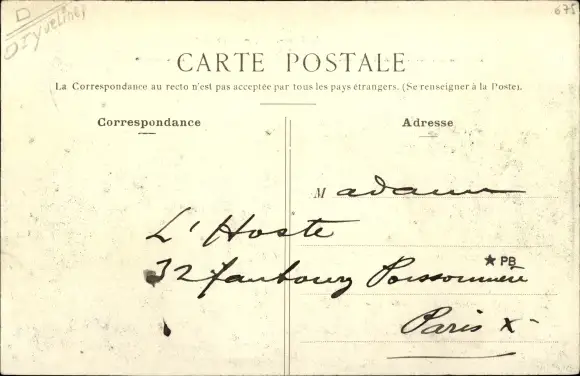 D
Yvelines
675
CARTE POSTALE
La Correspondance au recto n'est pas acceptée par tous les pays étrangers. (Se renseigner à la Poste).
Correspondance
Adresse
Madame
L'Hoste
★ PB
32 faubourg Poissonnière
Paris X